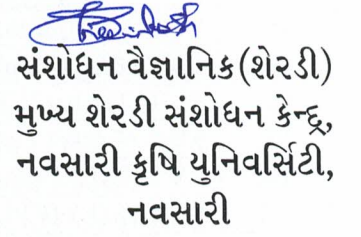 સંશોધન વૈજ્ઞાનિક(શેરડી)
મુખ્ય શેરડી સંશોધન કેન્દ્ર,
નવસારી કૃષિ યુનિવર્સિટી,
નવસારી